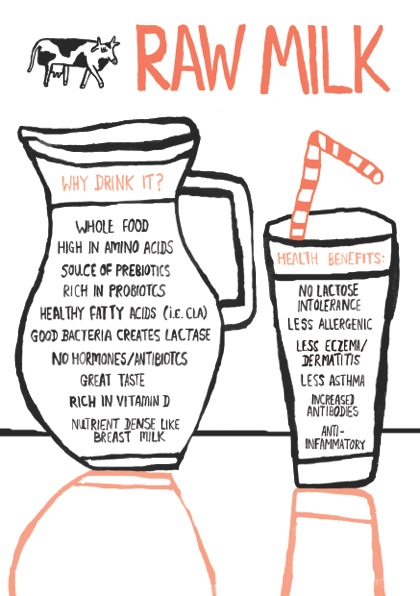 RAW MILK
WHY DRINK IT?
WHOLE FOOD
HIGH IN AMINO ACIDS
SOULCE OF PREBIOTICS
RICH IN PROBIOTCS
HEALTHY FATTY ACIDS (i.E. CLA)
GOOD BACTERIA CREATES LACTASE
NO HORMONES/ANTIBIOTCS
GREAT TASTE
RICH IN VITAMIN D
NUTRIENT DENSE LIKE
BREAST MILK
HEALTH BENEFITS:
NO LACTOSE
INTOLERANCE
LESS ALLERGENIC
LESS ECZEMA/
DERMATITIS
LESS ASTHMA
INCREASED
ANTIBODIES
ANTI-
INFAMMATORY